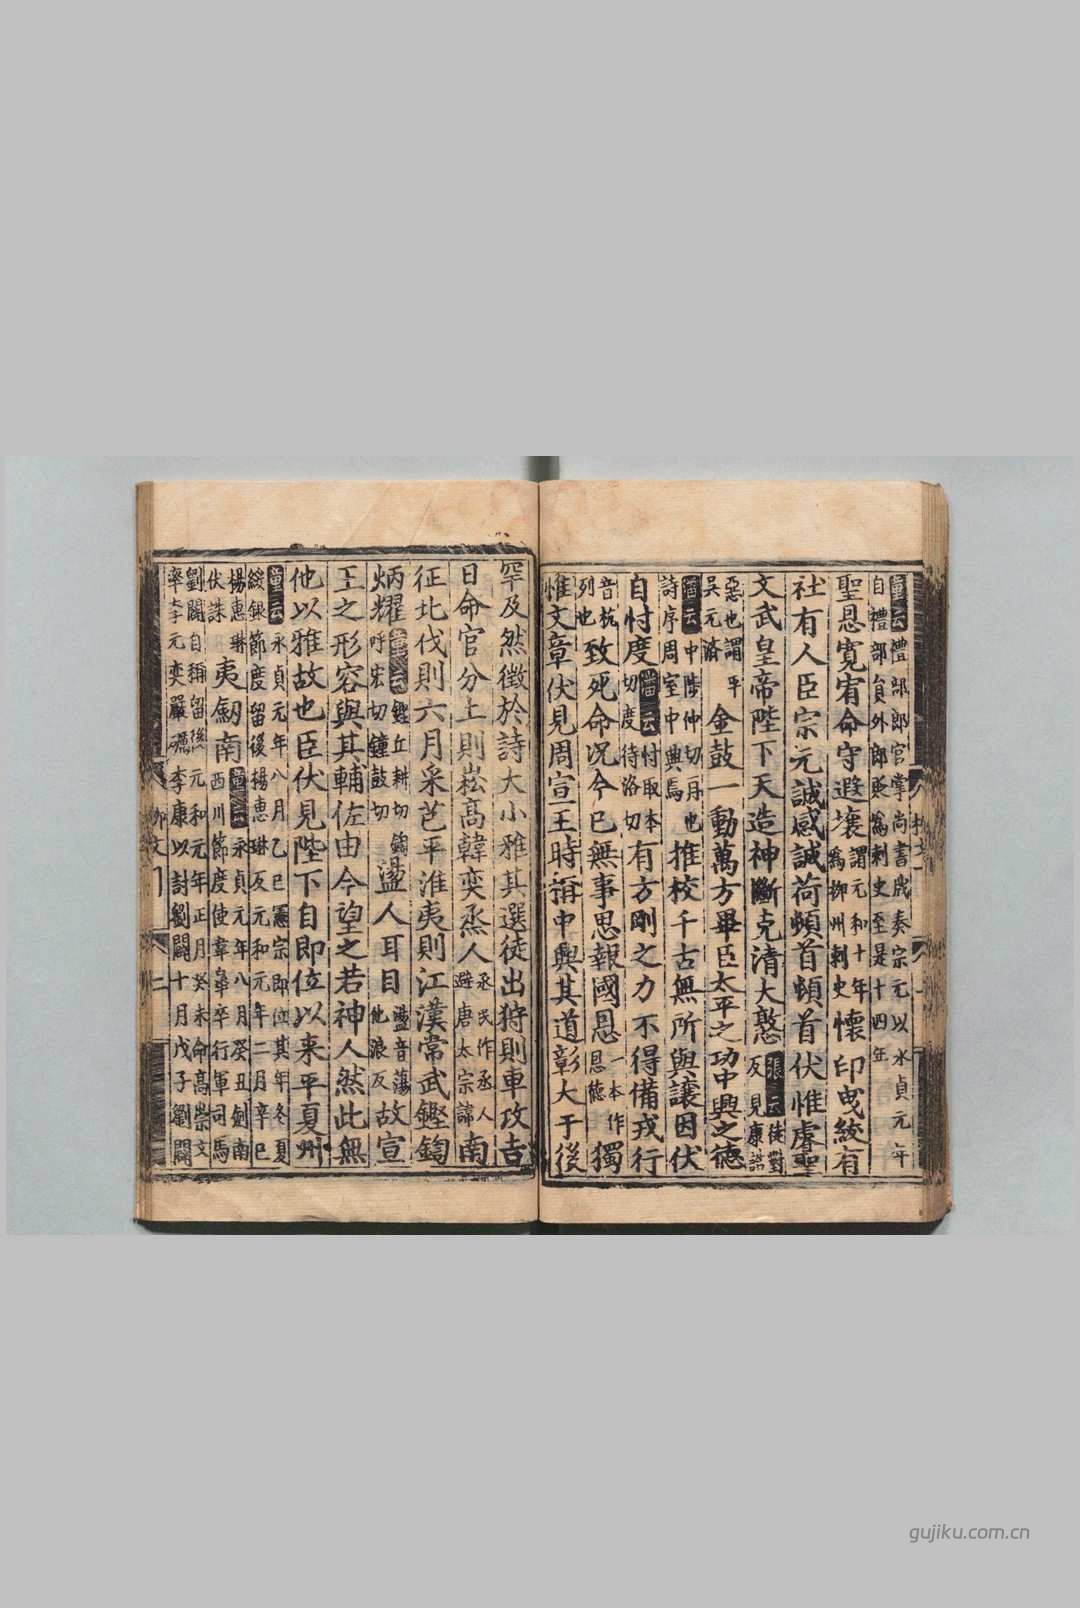 童云禮部郎官掌尚書牋奏宗元以永貞元年
自禮部員外郎貶為刺史至是十四年
聖恩寬宥命守遐壤謂元和十年為柳州刺史懷印曳紱有
社有人臣宗元誠感誠荷頓首頓首伏惟睿聖
文武皇帝陛下天造神斷克清大憝張云徒對反見康誥
惡也謂平吳元濟金鼓一動萬方畢臣太平之功中興之德
潘云中陟仲切再也詩序周室中興焉推校千古無所與讓因伏
自忖度潘云忖取本切度待洛切有方剛之力不得備戎行
音杭列也致死命况今已無事思報國恩一本作恩德獨
惟文章伏見周宣王時稱中興其道彰大于後
罕及然徵於詩大小雅其選徒出狩則車攻吉
日命官分土則崧高韓奕烝人烝民作烝人避唐太宗諱南
征北伐則六月采芑平淮夷則江漢常武鏗鍧
炳耀童云鏗丘耕切鍧呼宏切鐘鼓切盪人耳目盪音蕩他浪反故宣
王之形容與其輔佐由今望之若神人然此無
他以雅故也臣伏見陛下自即位以來平夏州
童云永貞元年八月乙巳憲宗即位其年冬夏
綏銀節度留後楊惠琳反元和元年二月辛巳
楊惠琳伏誅夷劒南童云永貞元年八月癸丑劒南西川節度使韋皋卒行軍司馬
劉闢自稱留後元和元年正月癸未命高崇文
率李元奕嚴礪李康以討劉闢十月戊子劉闢
柳文一
二
gujiku.com.cn